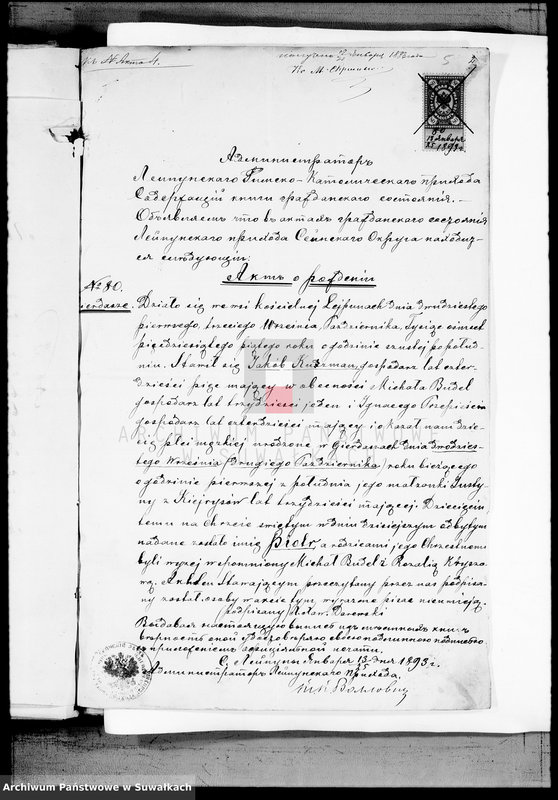 къ № Акта 4.
января 1893 года
5
Кс. М.
13 Января
25 1893 г.
Администраторъ
Лейпунского Римско-Католического прихода
Содержащий книги гражданского состоянія.—
Объявляетъ что въ актахъ гражданского состоянія
Лейпунского прихода Сейнского Округа находит-
ся слѣдующій:
Актъ о рожденіи
№ 80.
ierdasze.
Działo się we wsi kościelnej Lejpunach dnia dwudziestego
pierwszego, trzeciego Września, Października, Tysiąc ośmset
pięćdziesiątego piątego roku o godzinie szóstej po połud-
niu. Stawił się Jakób Kuzman, gospodarz lat czter-
dzieści pięć mający w obecności Michała Budel
gospodarz lat trzydzieści jeden i Ignacego
gospodarz lat czterdzieści mający i okazał nam dzie-
cię płci męzkiej urodzone w Gierdaszach dnia dwudzies-
tego Września /Drugiego Października/ roku bieżącego
o godzinie pierwszej z południa jego małżonki Justy-
ny z lat trzydzieści mającej. Dziecięciu
temu na Chrzcie świętym w dniu dzisiejszym odbytym
nadane zostało imię Piotr, a rodzicami jego Chrzestnemi
byli wyżej wspomniony Michał Budel z Rozalią
wą. Akt ten stawającym przeczytany przez nas podpisa-
ny został, osoby w akcie tym wyrażone pisać nieumieją.
(podpisany) X. Adm. Darewski
Выдавая настоящую выпись изъ метрическихъ книгъ
вѣрность оной удостовѣряю своею подлинною подписью
съ приложеніемъ оффиціальной печати.
С. Лейпуны Января 13/25 дня 1893 г.
Администраторъ Лейпунского прихода.
ARCHIWUM PAŃSTWOWE
W SUWAŁKACH
Archiwum Państwowe w Suwałkach